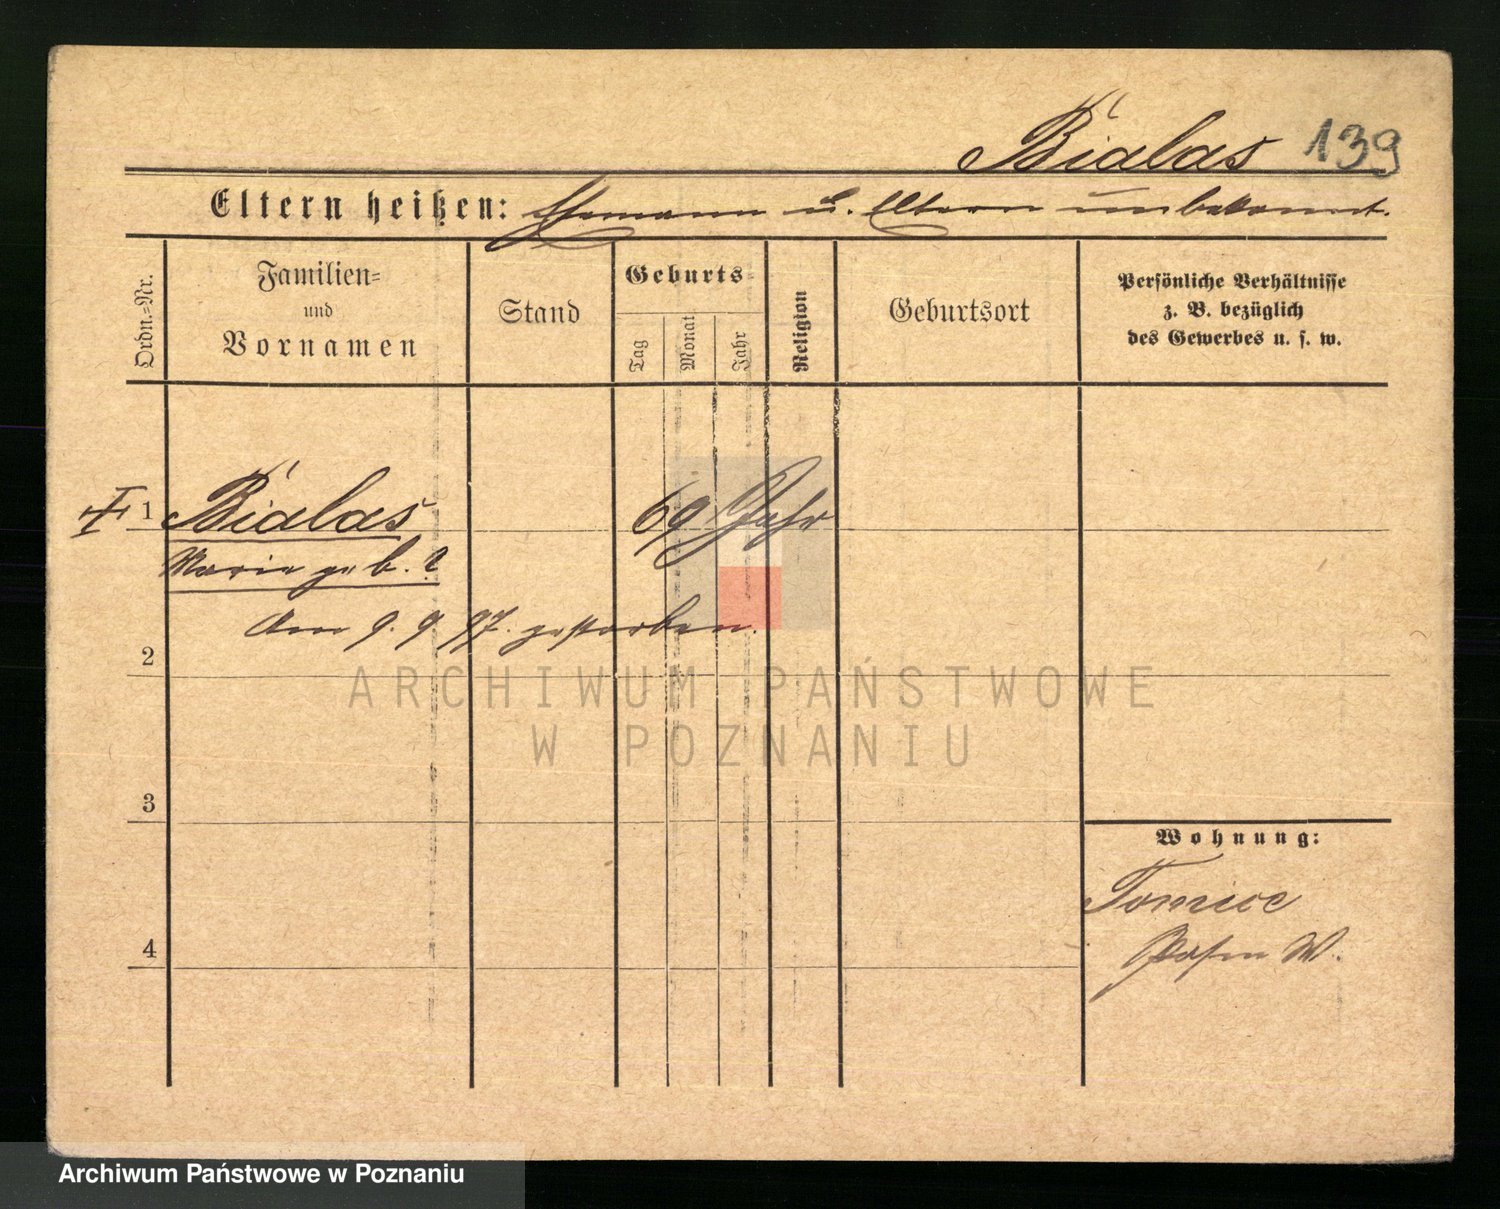 Bialas 139
Eltern heißen: Ehemann u. Eltern unbekannt.
Ordn.-Nr.
Familien-
und
Vornamen
Stand
Geburts
Tag
Monat
Jahr
Religion
Geburtsort
Persönliche Verhältnisse
z. B. bezüglich
des Gewerbes u. s. w.
1 Bialas 69 Jahr
Marie geb. ?
Am 9. 9. 97. gestorben.
2
ARCHIWUM PAŃSTWOWE
W POZNANIU
3
Wohnung:
Tomice
Posen W.
4
Archiwum Państwowe w Poznaniu